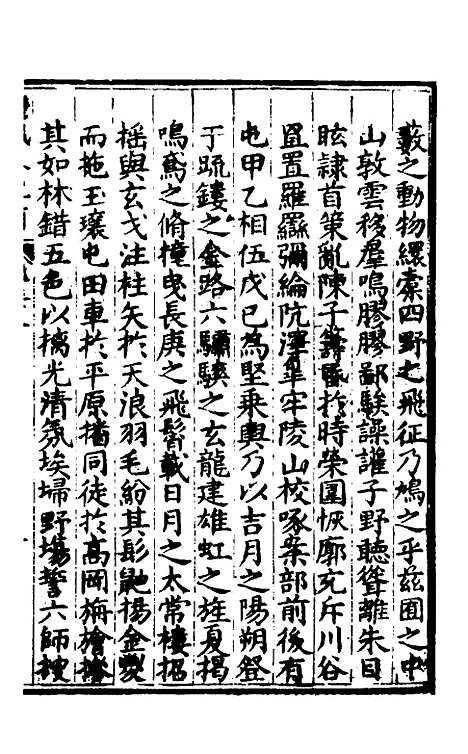 藪之動物繯橐四野之飛征乃鳩之乎茲囿之中
山敦雲移羣鳴膠膠鄙騃譟讙子野聽聳離朱目
眩隷首策亂陳子籌昏於時營圍恢廓充斥川谷
罝羅羉彌綸阬澤臯牢陵山校隊案部前後有
屯甲乙相伍戊己為堅乘輿乃以吉月之陽朔登
于䟽鏤之金路六驌騻之玄龍建雄虹之旌夏揭
鳴鳶之脩橦曳長庚之飛髾載日月之太常棲招
搖與玄弋注枉矢於天浪羽毛紛其髟鼬揚金㚇
而拖玉瓖屯田車於平原播同徒於高岡旃旝摻
其如林錯五色以摛光清氛埃埽野場誓六師搜